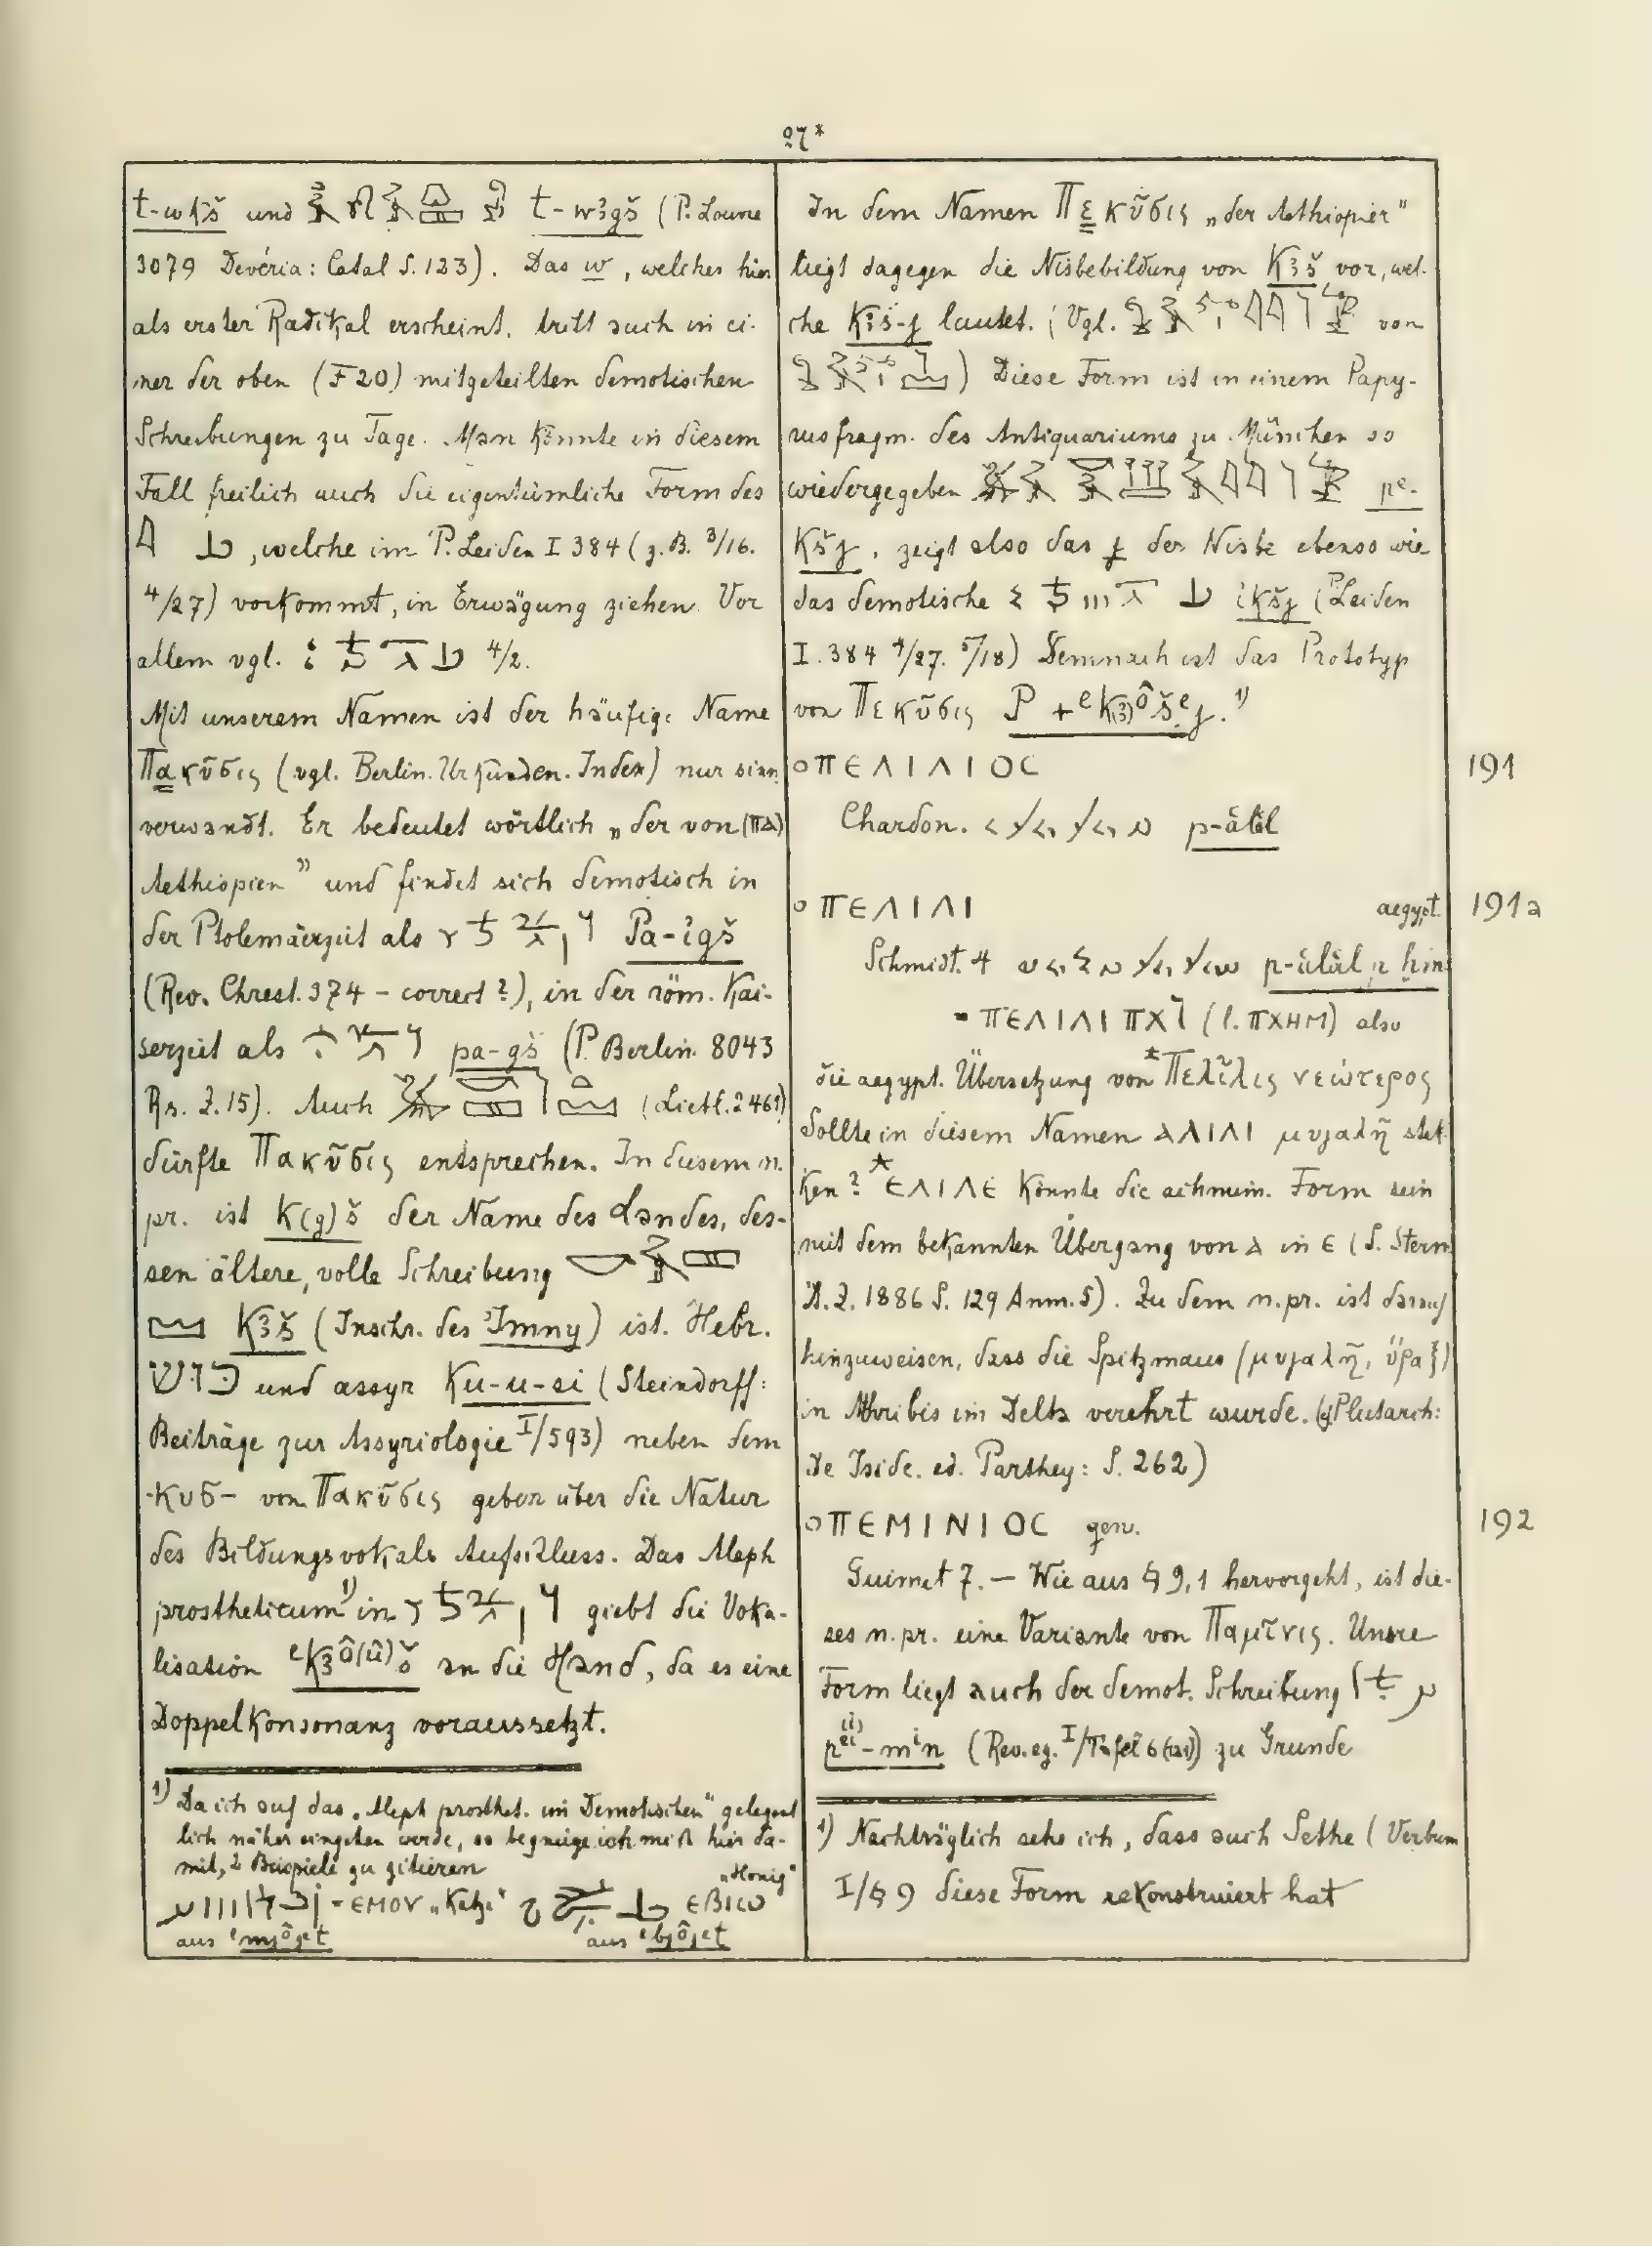 27*
t-wkš und t-wꜣgš (P. Louvre
3079 Devéria: Catal S. 123). Das w, welches hier
als erster Radikal erscheint, tritt auch in ei-
ner der oben (F 20) mitgeteilten demotischen
Schreibungen zu Tage. Man könnte in diesem
Fall freilich auch die eigentümliche Form des
, welche im P. Leiden I 384 (z. B. 3/16.
4/27) vorkommt, in Erwägung ziehen. Vor
allem vgl. 4/2.
Mit unserem Namen ist der häufige Name
Πακῦσις (vgl. Berlin. Urkunden. Index) nur sinn
verwandt. Er bedeutet wörtlich „der von (ⲠⲀ)
Aethiopien” und findet sich demotisch in
der Ptolemäerzeit als Pa-igš
(Rev. Chrest. 374 – correct?), in der röm. Kai-
serzeit als pa-gš (P. Berlin. 8043
Rs. Z. 15). Auch (Liebl. 2461)
dürfte Πακῦσις entsprechen. In diesem n.
pr. ist K(g)š der Name des Landes, des-
sen ältere, volle Schreibung
Kꜣš (Inschr. des Imny) ist. Hebr.
כוש und assyr Ku-u-si (Steindorff:
Beiträge zur Assyriologie I/593) neben dem
-κυσ- von Πακῦσις geben über die Natur
des Bildungsvokals Aufschluss. Das Aleph
prostheticum 1) in giebt die Voka-
lisation ᵉKꜣô(û)š an die Hand, da es eine
Doppelkonsonanz voraussetzt.
1) Da ich auf das „Aleph prosthet. im Demotischen” gelegent
lich näher eingehen werde, so begnüge ich mich hier da-
mit, 2 Beispiele zu zitieren
- ⲈⲘⲞⲨ „Katze” ⲈⲂⲒⲰ „Honig”
aus ᵉmjôjet aus ᵉbjôjet
In dem Namen Πεκῦσις „der Aethiopier”
liegt dagegen die Nisbebildung von Kꜣš vor, wel-
che Kꜣš-j lautet. (Vgl. von
) Diese Form ist in einem Papy-
rusfragm. des Antiquariums zu München so
wiedergegeben pe-
Kšj, zeigt also das j der Nisbe ebenso wie
das demotische ikšj (P. Leiden
I. 384 4/27. 5/18) Demnach ist das Prototyp
von Πεκῦσις P + ᵉK(ꜣ)ôšᵉj. 1)
○ ⲠⲈⲖⲒⲖⲒⲞⲤ 191
Chardon. p-âlîl
○ ⲠⲈⲖⲒⲖⲒ aegypt. 191a
Schmidt. 4 p-âlâl p ḫm
= ⲠⲈⲖⲒⲖⲒ ⲠⲬⲒ (l. ⲠⲬⲎⲘ) also
die aegypt. Übersetzung von *Πελῖλις νεώτερος
Sollte in diesem Namen ⲀⲖⲒⲖⲒ μυγαλῆ stek
ken? *ⲈⲖⲒⲖⲈ könnte die achmim. Form sein
mit dem bekannten Übergang von Ⲁ in Ⲉ (S. Stern
Ä. Z. 1886 S. 129 Anm. 5). Zu dem n. pr. ist darauf
hinzuweisen, dass die Spitzmaus (μυγαλῆ, ὕραξ)
in Athribis im Delta verehrt wurde. (cf. Plutarch:
De Iside. ed. Parthey: S. 262)
○ ⲠⲈⲘⲒⲚⲒⲞⲤ gen. 192
Guimet 7. — Wie aus § 9,1 hervorgeht, ist die-
ses n. pr. eine Variante von Παμῖνις. Unsre
Form liegt auch der demot. Schreibung
pᵉⁱ⁽ⁱ⁾-mⁱn (Rev. eg. I/Tafel 6 (221)) zu Grunde
1) Nachträglich sehe ich, dass auch Sethe (Verbum
I/§ 9 diese Form rekonstruiert hat